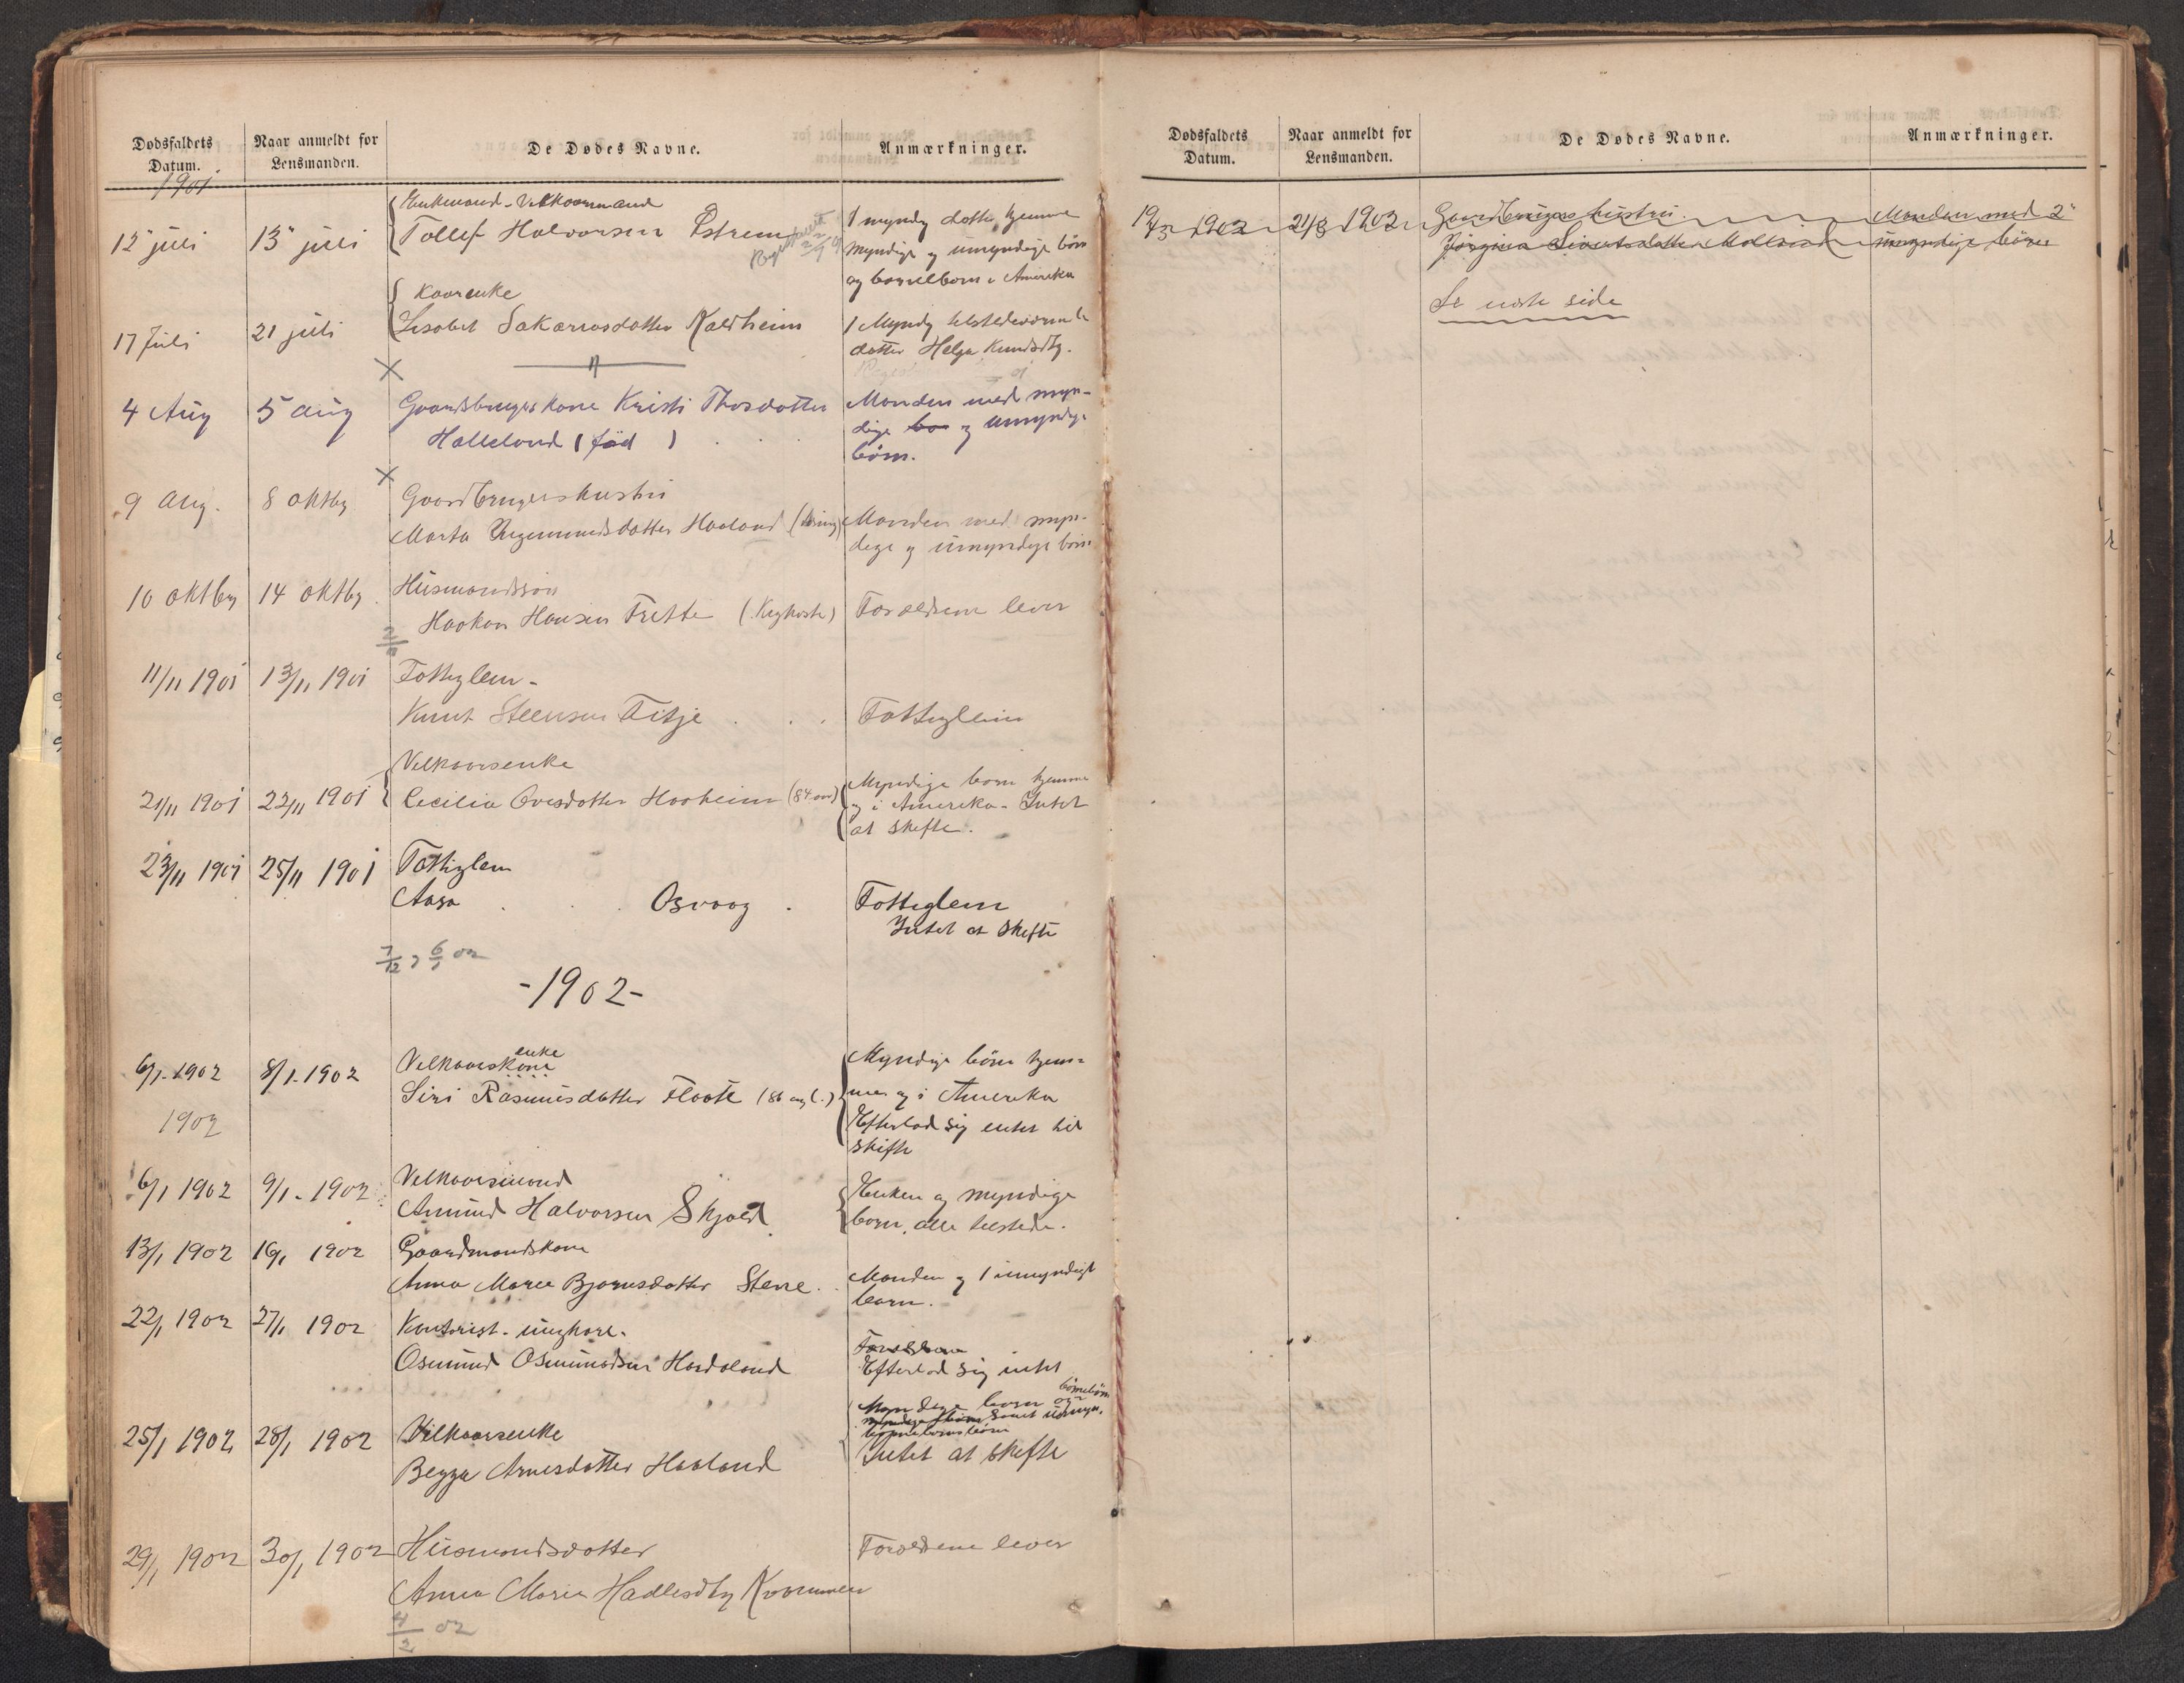 Dødsfaldets Datum.
Naar anmeldt for Lensmanden.
De Dødes Navne.
Anmærkninger.
1901
12 juli
13 juli
Enkemand - Vilkaarsmand
Tollef Halvorsen Østrem
1 myndg datter hjemme
myndige og umyndige børn
og barnebørn i Amerika
17 Juli
21 juli
Kaarenke
Lisabet Sakariasdatter Kaldheim
1 Myndg tilstedeværende
datter Helga Knudsdtg.
4 Aug
5 aug
Gaardbrugerskone Kristi Thosdatter
Halleland (fød )
Manden med myn-
dige bø og umyndige
børn.
9 Aug.
8 oktbr
Gaardbrugerhustru
Marta Ingemundsdatter Haaland
Manden med myn-
dige og umyndige børn
10 oktbr
14 oktbr
Husmandssøn
Haakon Hansen Frette (Kighoste)
Forældrene lever
11/11 1901
13/11 1901
Fattiglem -
Knut Steensen Fitje
Fattiglem
21/11 1901
22/11 1901
Vilkaarsenke
Cecilia Ovesdatter Haaheim (84 aar)
Myndige børn hjemme
og i Amerika - Intet
at skifte.
23/11 1901
25/11 1901
Fattiglem
Aasa Osvaag
Fattiglem
Intet at skifte
7/12, 6/1 02
-1902-
6/1-1902
8/1-1902
enke
Vilkaarskone
Siri Rasmusdatter Flaate
Myndige børn hjem-
me og i Amerika
Efterlod sig intet til
skifte
1902
6/1 1902
9/1-1902
Vilkaarsmand
Amund Halvorsen Skjold
Enken og myndige
børn, alle tilstede.
13/1 1902
16/1 1902
Gaardmandskone
Anna Marie Bjørnsdatter Stene
Manden og 1 umyndigt
barn.
22/1 1902
27/1 1902
Kontorist - ungkarl.
Osmund Osmundsen Hardeland
Efterlod sig intet
25/1 1902
28/1 1902
Vilkaarsenke
Begga Arnesdatter Haaland
Myndige børn og
børnebørn
Intet at skifte
29/1 1902
30/1 1902
Husmandsdatter
Anna Maria Hadlesdtg Kvammen
Forældrene lever
4/2 02
Dødsfaldets Datum.
Naar anmeldt for Lensmanden.
De Dødes Navne.
Anmærkninger.
19/3 1902
21/3 1902
Gaardbrugerhustru
Jørgina Sivertsdatter
Manden med 2
umyndige børn
Se neste side